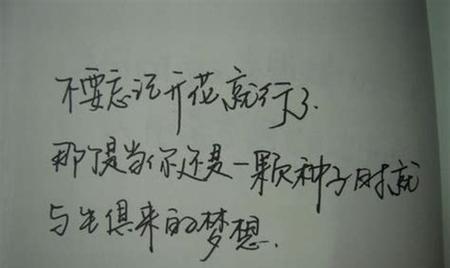 不要忘记开花就行了.
那个是当你还是一颗种子时就
与生俱来的梦想.